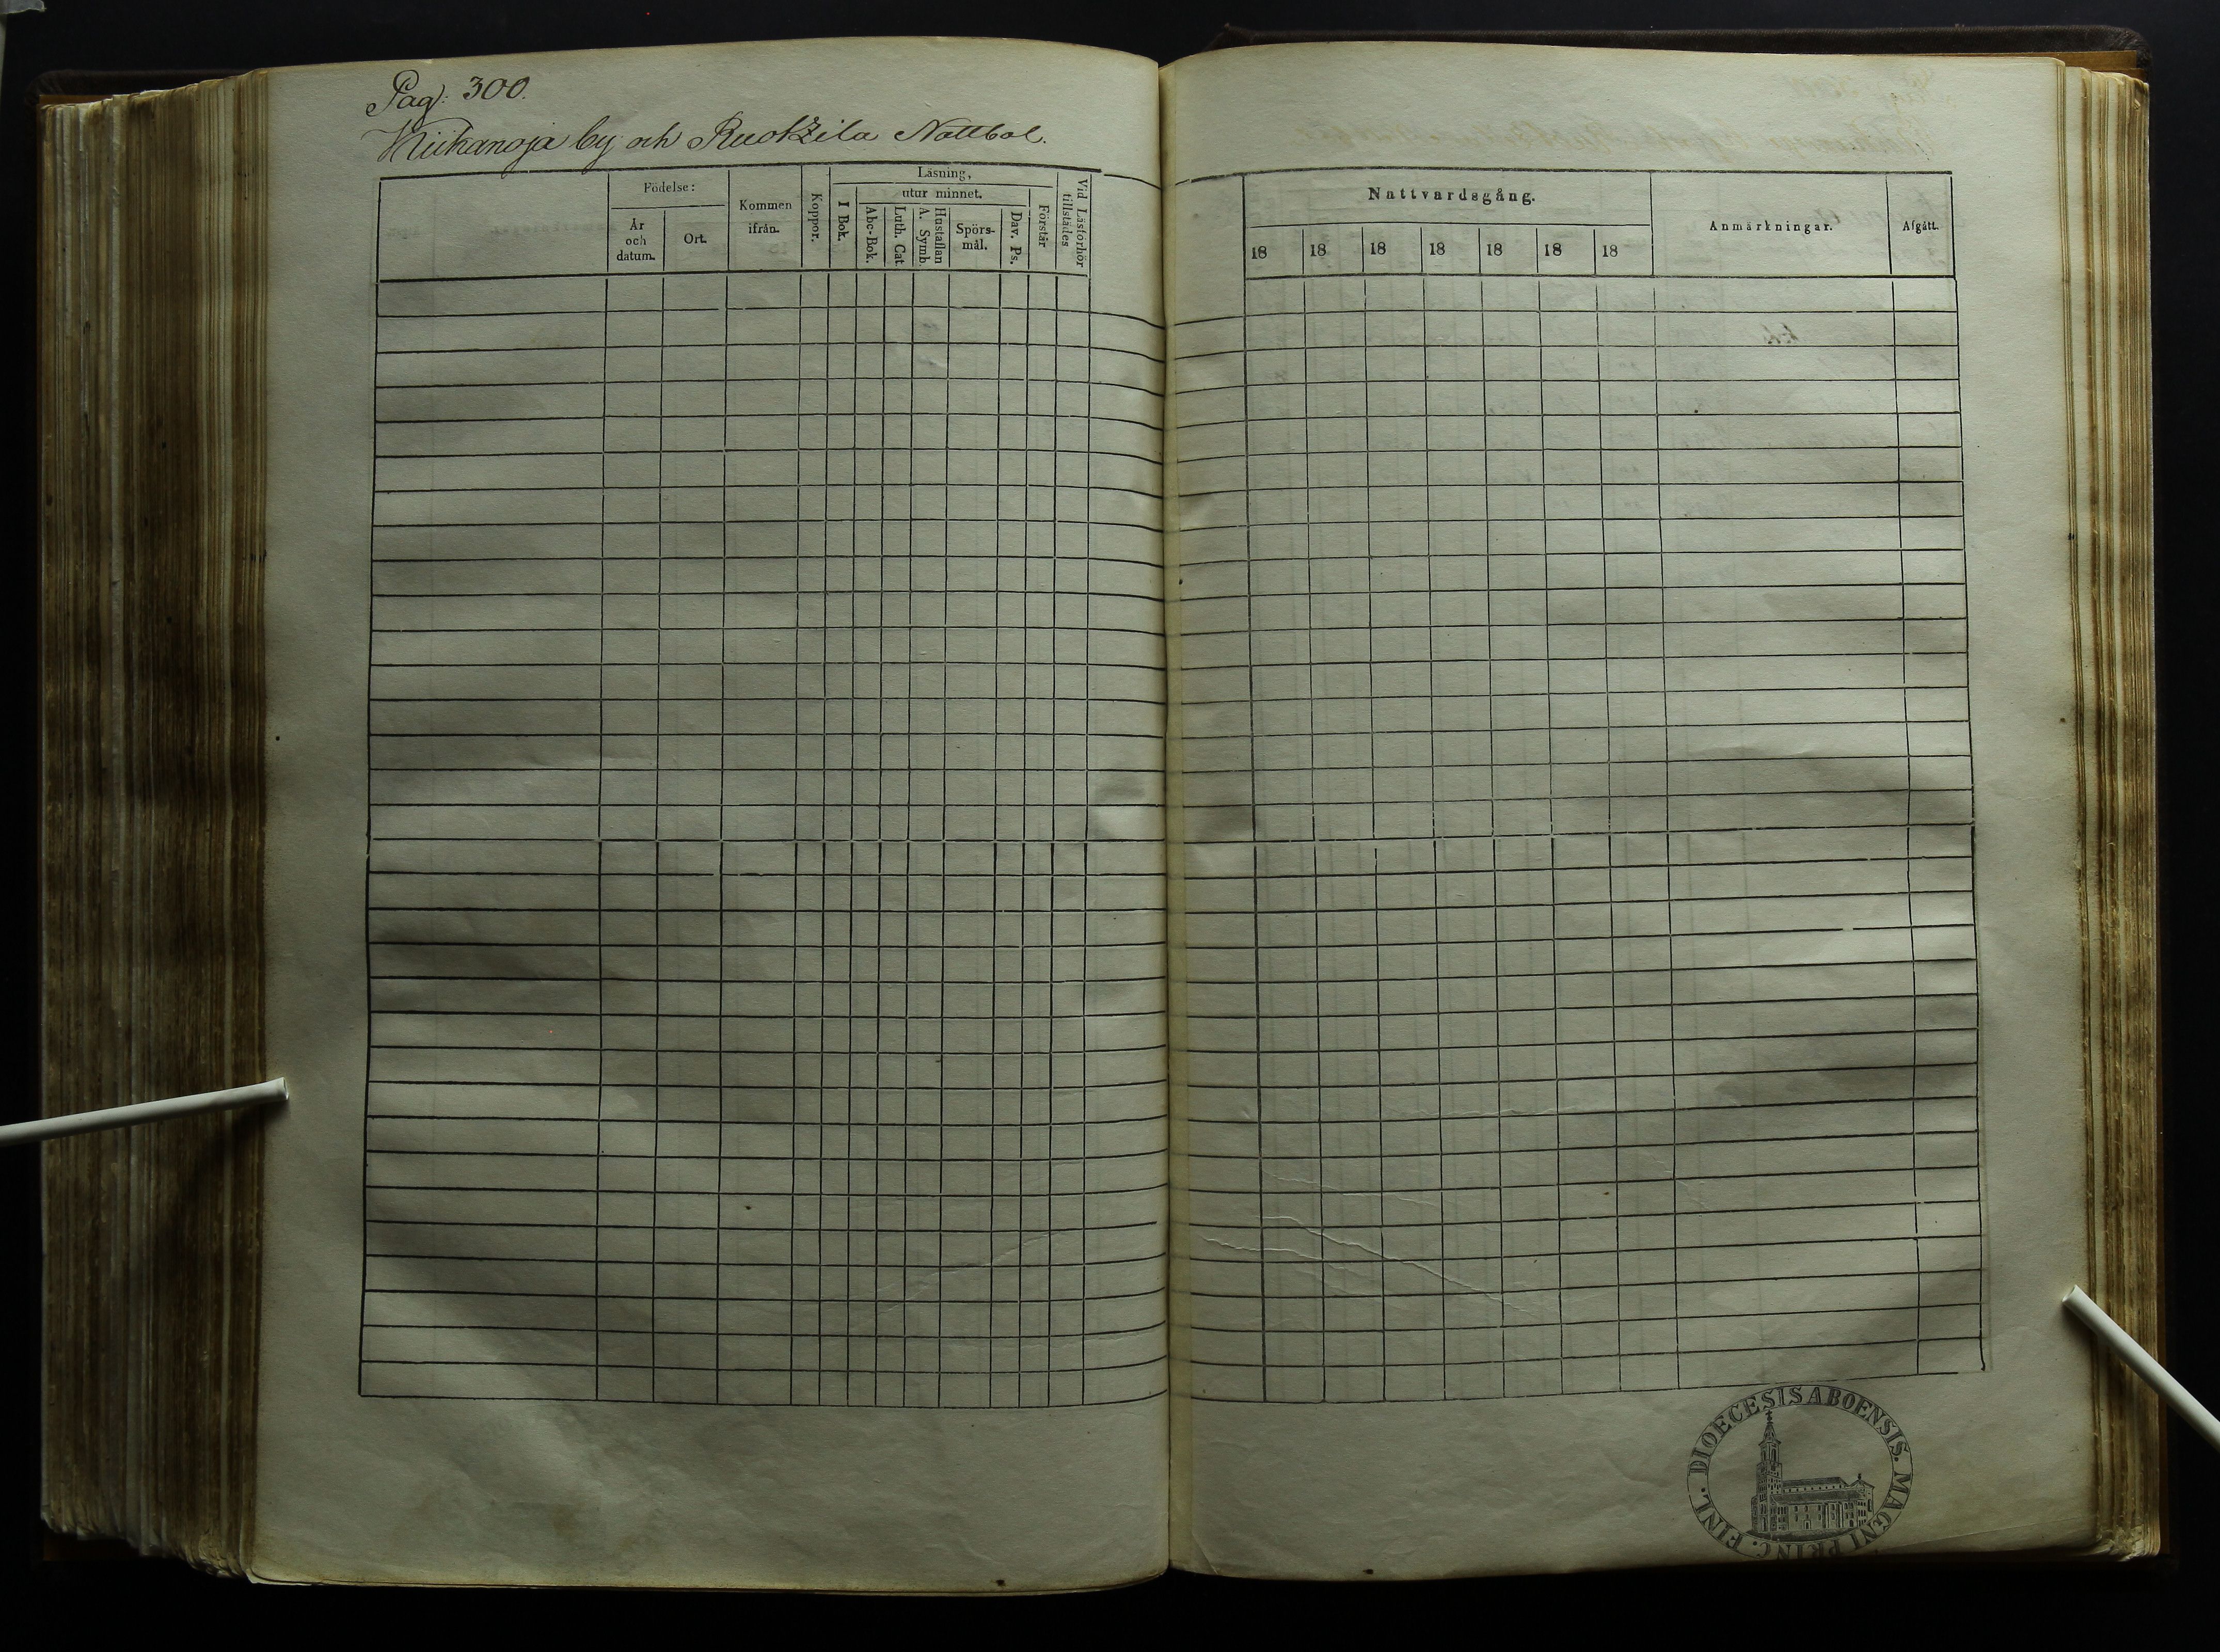 Pag: 300.
Kiikanoja by och Ruokzila Nattbol.
Födelse:
År och datum.
Ort.
Kommen ifrån.
Koppor.
Läsning,
I Bok.
utur minnet.
Abc-Bok.
Luth. Cat.
Hustaflan A. Symb.
Spörs-mål.
Dav. Ps.
Förstår
Vid Läsförhör tillstädes
Nattvardsgång.
18 18 18 18 18 18 18
Anmärkningar.
Afgått.
DIOECESIS ABOENSIS. MAGNI PRINC. FINL.